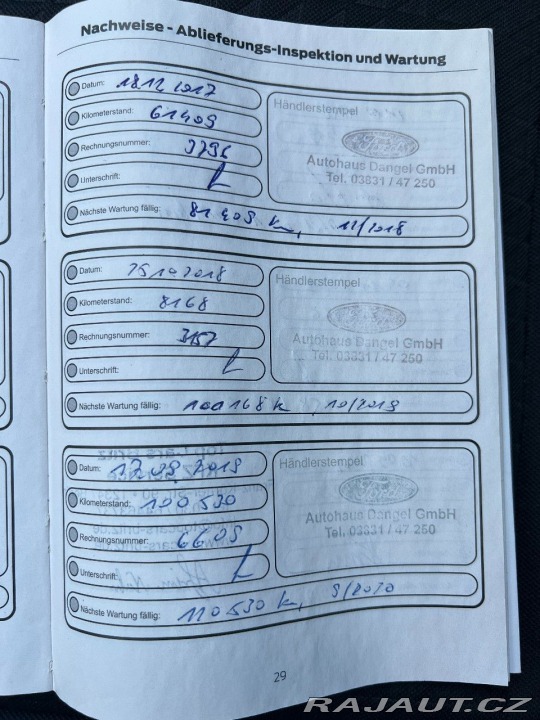 Nachweise - Ablieferungs-Inspektion und Wartung
Datum: 18.12.2017
Händlerstempel
Kilometerstand: 61409
Ford
Rechnungsnummer: 3796
Autohaus Dangel GmbH
Tel. 03831 / 47 250
Unterschrift:
Nächste Wartung fällig: 81409 km, 12/2018
Datum: 25.10.2018
Händlerstempel
Kilometerstand: 8168
Ford
Rechnungsnummer: 3157
Autohaus Dangel GmbH
Tel. 03831 / 47 250
Unterschrift:
Nächste Wartung fällig: 100168 k 10/2019
Datum: 17.09.2019
Händlerstempel
Kilometerstand: 100530
Ford
Rechnungsnummer: 6609
Autohaus Dangel GmbH
Tel. 03831 / 47 250
Unterschrift:
Nächste Wartung fällig: 110530 km, 9/2020
29
RAJAUT.CZ